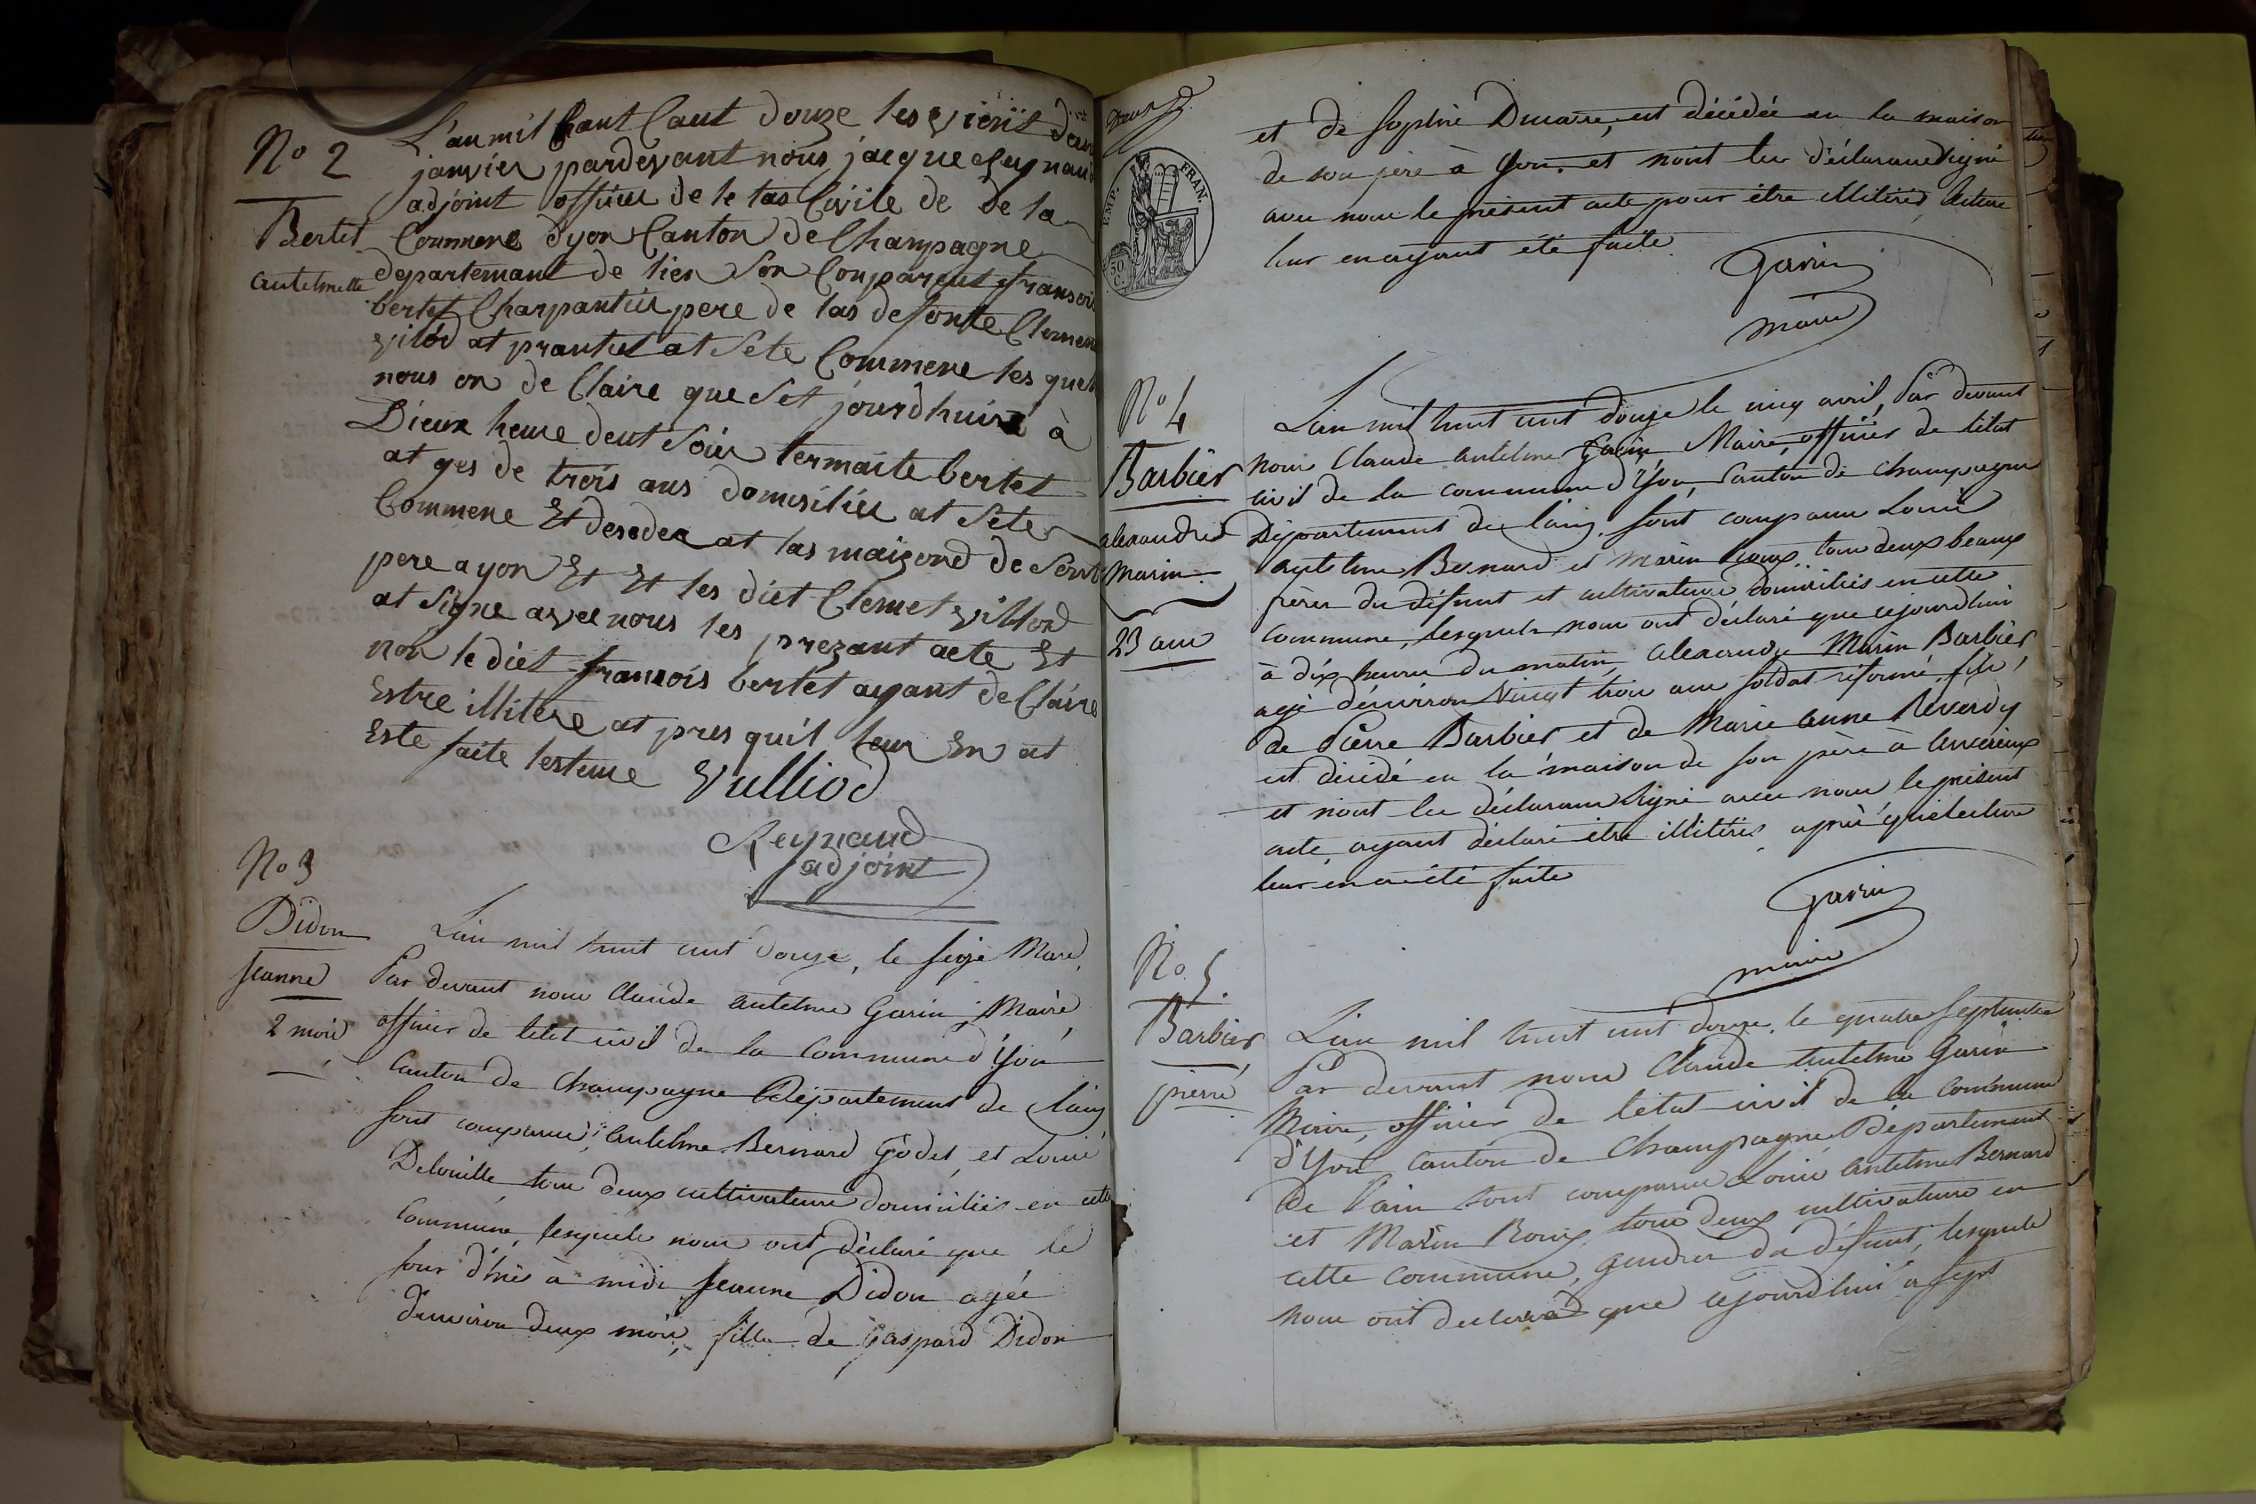 No 2
Bertet
antelmette
L'an mil hant Cant douze les vient deux
janvier pardevant nous jacque Reynaud
adjoint officier de le tas Civile de de la
Commene dyon Canton de Champagne
departemant de lien Son Conparent fransois
bertet Charpantier pere de las defonte Clemen
viliod at prantut at Sete Commene les quels
nous on de Claire que Set jourdhuire à
Dieux heure deut Soir termaite bertet
at ges de trois ans domisiliee at Sete
Commene Et desedee at las maizond de Sont
pere a yon Et Et les diet Clemet villiod
at Signe avee nous les prezant acte Et
non le diet francois bertet ayant de Claire
Estre illitere at pres quil leur En at
Este faite lesteure Vulliod
Reynaud
adjoint
No 3
Didon
Jeanne
2 mois
L'an mil huit cent douze, le seize Mars,
Par devant nous Claude antelme Garin, Maire,
officier de letat civil de la Commune d'Yon
Canton de Champagne Département de l'ain
sont comparus, antelme Bernard Godet, et Louis
Delouille tous deux cultivateurs domiciliés en cette
Commune, lesquels nous ont déclaré que le
jour d'hier à midi Jeanne Didon agée
d'environ deux mois, fille de Gaspard Didon
EMP. FRAN.
50 C.
et de Sophie Ducarre, est décédée en la maison
de son père à Yon. et n'ont les déclarans signé
avec nous le présent acte pour être illitérés, lecture
leur en ayant été faite.
Garin
maire
No 4
Barbier
alexandre
Marin
23 ans
L'an mil huit cent douze le cinq avril, Par devant
nous Claude antelme Garin Maire, officier de l'état
civil de la commune d'Yon, Canton de Champagne
Département de l'ain, sont comparus Louis
antelme Bernard et Marin Roux tous deux beaux
frères du défunt et cultivateurs domiciliés en cette
Commune, lesquels nous ont déclaré que cejourdhui
à dix heures du matin, alexandre Marin Barbier
agé d'environ vingt trois ans soldat réformé, fils
de Pierre Barbier et de Marie anne Reverdy
est décédé en la maison de son père à
et n'ont les déclarans signé avec nous le présent
acte, ayant déclaré être illitérés, après que lecture
leur en a été faite
Garin
maire
No 5.
Barbier
pierre
L'an mil huit cent douze, le quatre Septembre
Par devant nous Claude Antelme Garin
Maire, officier de l'etat civil de la commune
d'Yon, canton de Champagne Département
de l'ain sont comparus Louis antelme Bernard
et Marin Roux, tous deux cultivateurs en
cette commune, gendres du défunt, lesquels
nous ont déclaré que cejourdhui a sept